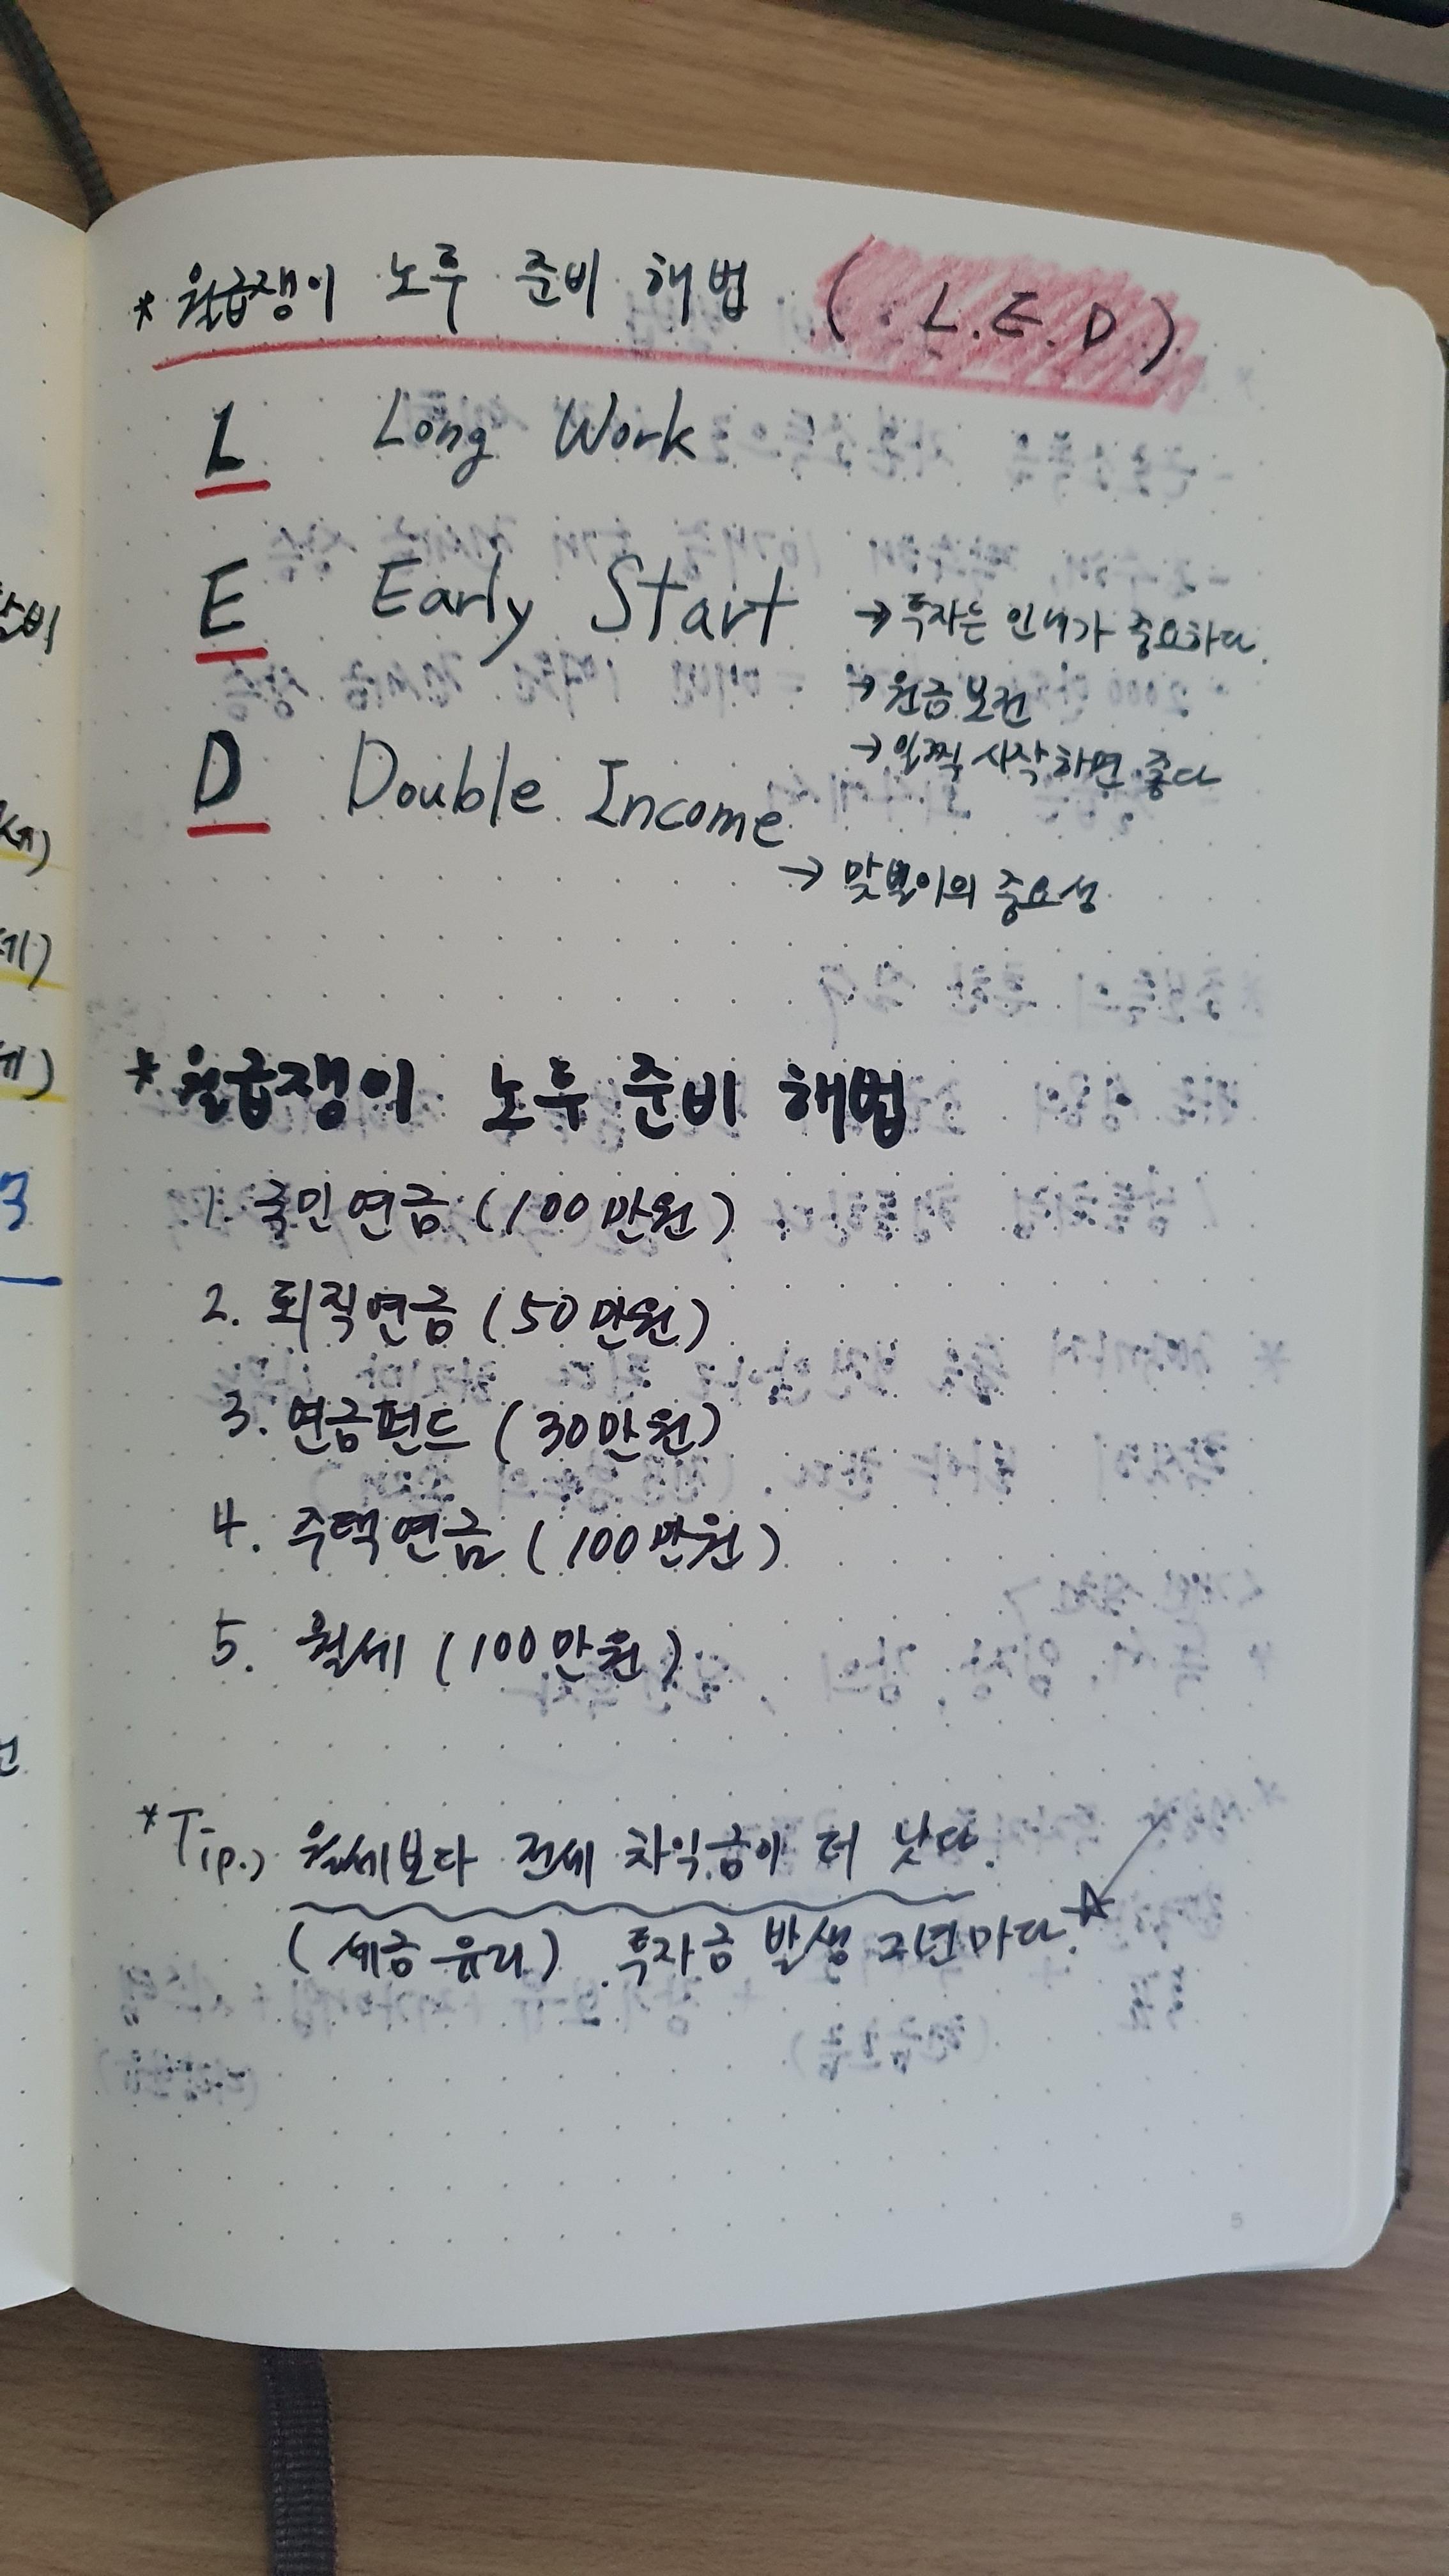 * 월급쟁이 노후 준비 해법 (L.E.D)
L Long Work
E Early Start → 투자는 인내가 중요하다.
→ 원금 보전
→ 일찍 시작하면 좋다
D Double Income
→ 맞벌이의 중요성
* 월급쟁이 노후 준비 해법
1. 국민연금 (100만원)
2. 퇴직연금 (50만원)
3. 연금펀드 (30만원)
4. 주택연금 (100만원)
5. 월세 (100만원)
* Tip.) 월세보다 전세 차익금이 더 낫다.
(세금 유리) 투자금 발생 2년마다.☆
5